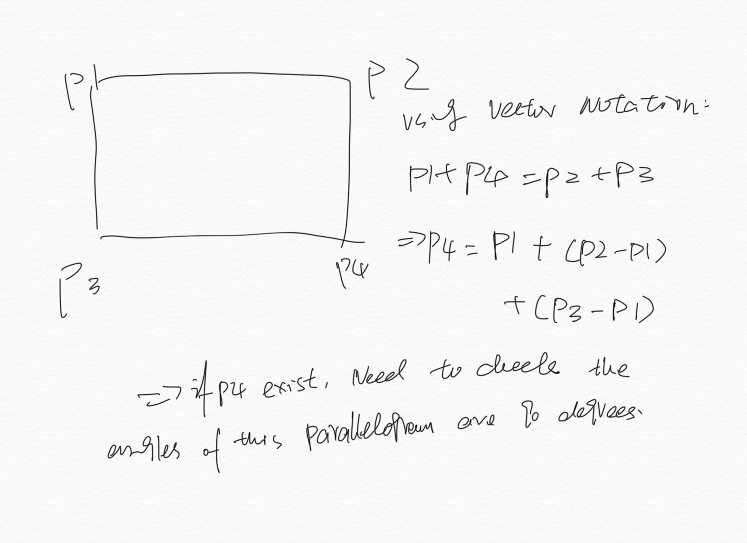 P1
P2
using vector notation:
P1 + P4 = P2 + P3
=> P4 = P1 + (P2 - P1)
+ (P3 - P1)
P3
P4
=> if P4 exist, Need to check the
angles of this parallelogram are 90 degrees.